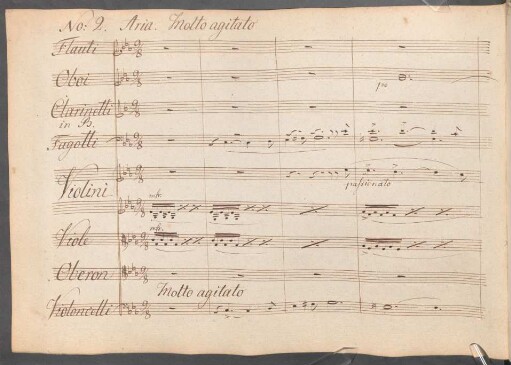 No: 2. Aria. Molto agitato
Flauti
Oboi
Clarinetti
in B.
Fagotti
Violini
passionato
Viole
Oberon
Molto agitato
Violoncelli